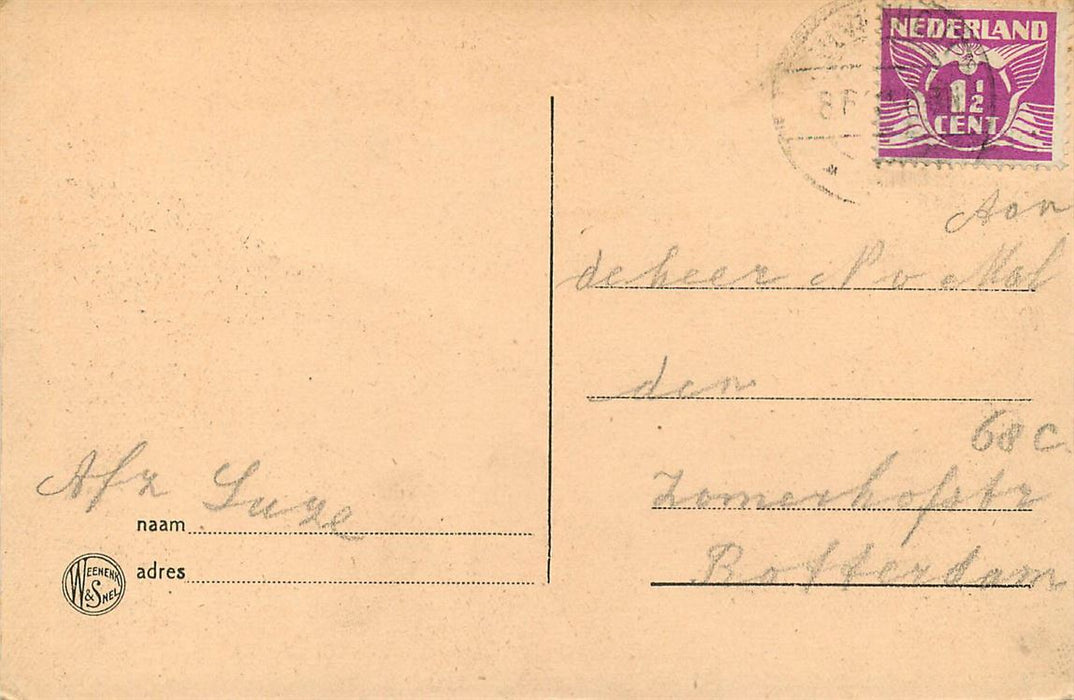 NEDERLAND
1½
CENT
Aan
de heer N v Mal
den
68 c
Zomerhofstr
Rotterdam
Afz Luze
naam
adres
WEENENK
& SNEL